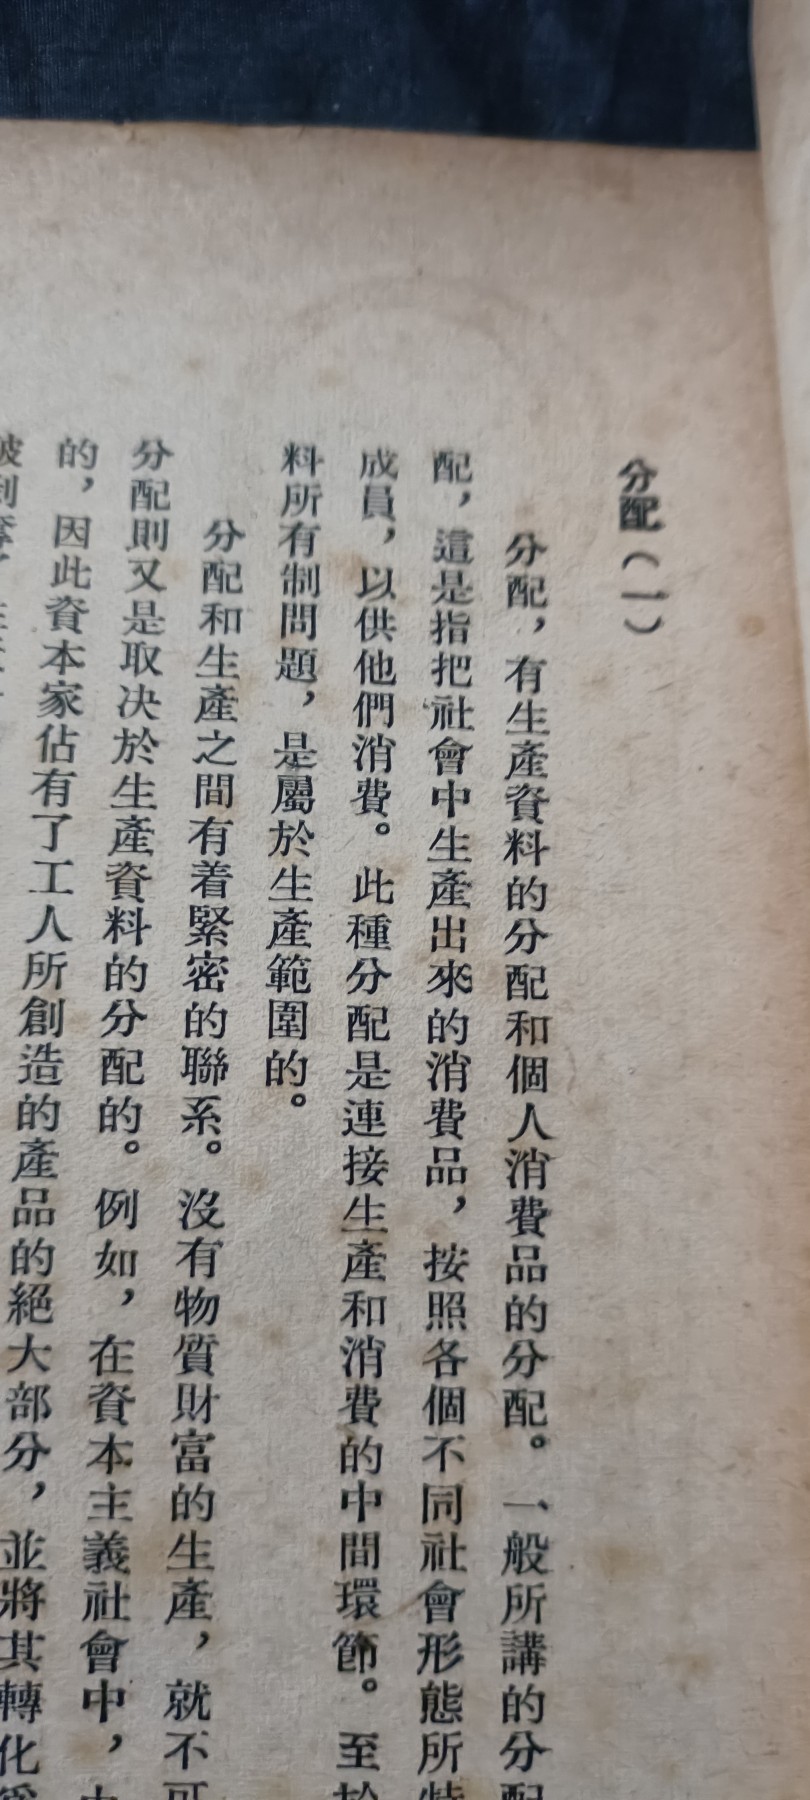 分配(一)
分配，有生產資料的分配和個人消費品的分配。一般所講的分配
配，這是指把社會中生產出來的消費品，按照各個不同社會形態所特
成員，以供他們消費。此種分配是連接生產和消費的中間環節。至於
料所有制問題，是屬於生產範圍的。
分配和生產之間有着緊密的聯系。沒有物質財富的生產，就不可
分配則又是取决於生產資料的分配的。例如，在資本主義社會中，
的，因此資本家佔有了工人所創造的產品的絕大部分，並將其轉化